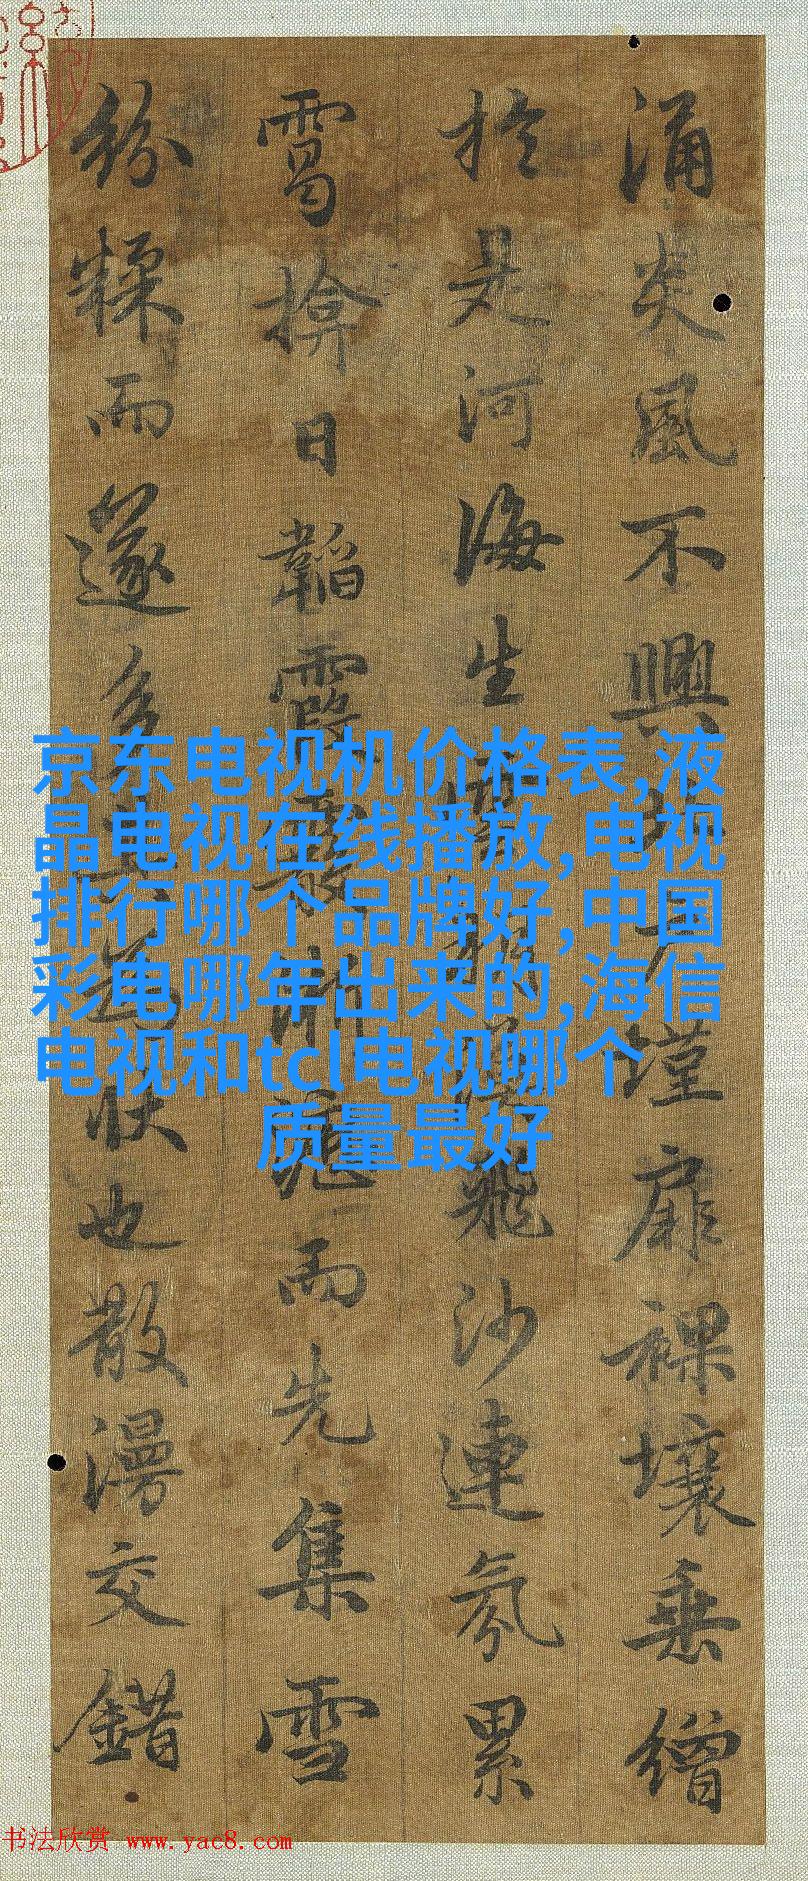 涌炎風不興北户墐扉裸壤垂繒
於是河海生雲朔漠飛沙連氛累
靄揜日韜霞霰淅瀝而先集雪
紛糅而遂多其為狀也散漫交錯
京东电视机价格表,液
晶电视在线播放,电视
排行哪个品牌好,中国
彩电哪年出来的,海信
电视和tcl电视哪个
质量最好
书法欣赏 www.yac8.com